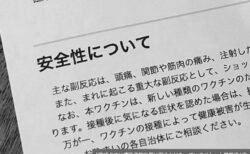 安全性について
主な副反応は、頭痛、関節や筋肉の痛み、注射した
また、まれに起こる重大な副反応として、ショッ
なお、本ワクチンは、新しい種類のワクチンのた
ります。接種後に気になる症状を認めた場合は、接
万が一、ワクチンの接種によって健康被害が生
お住まいの各自治体にご相談ください。